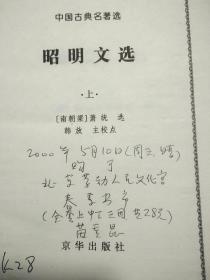 中国古典名著选
昭明文选
·上·
[南朝梁]萧统 选
韩放 主校点
2000年5月10日(周三,晴)
购于
北京劳动人民文化宫
春季书市
(全套上中下三册共28元)
京华出版社
K28